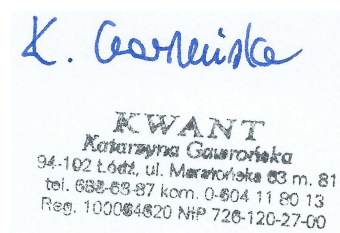 K.
KWANT
Katarzyna Gawrońska
94-102 Łódź, ul. Maratońska 63 m. 81
tel. 688-63-87 kom. 0-604 11 80 13
Reg. 100064620 NIP 726-120-27-00